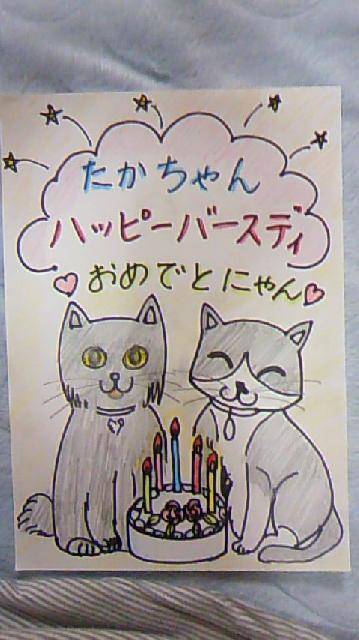 たかちゃん
ハッピーバースディ
おめでとにゃん